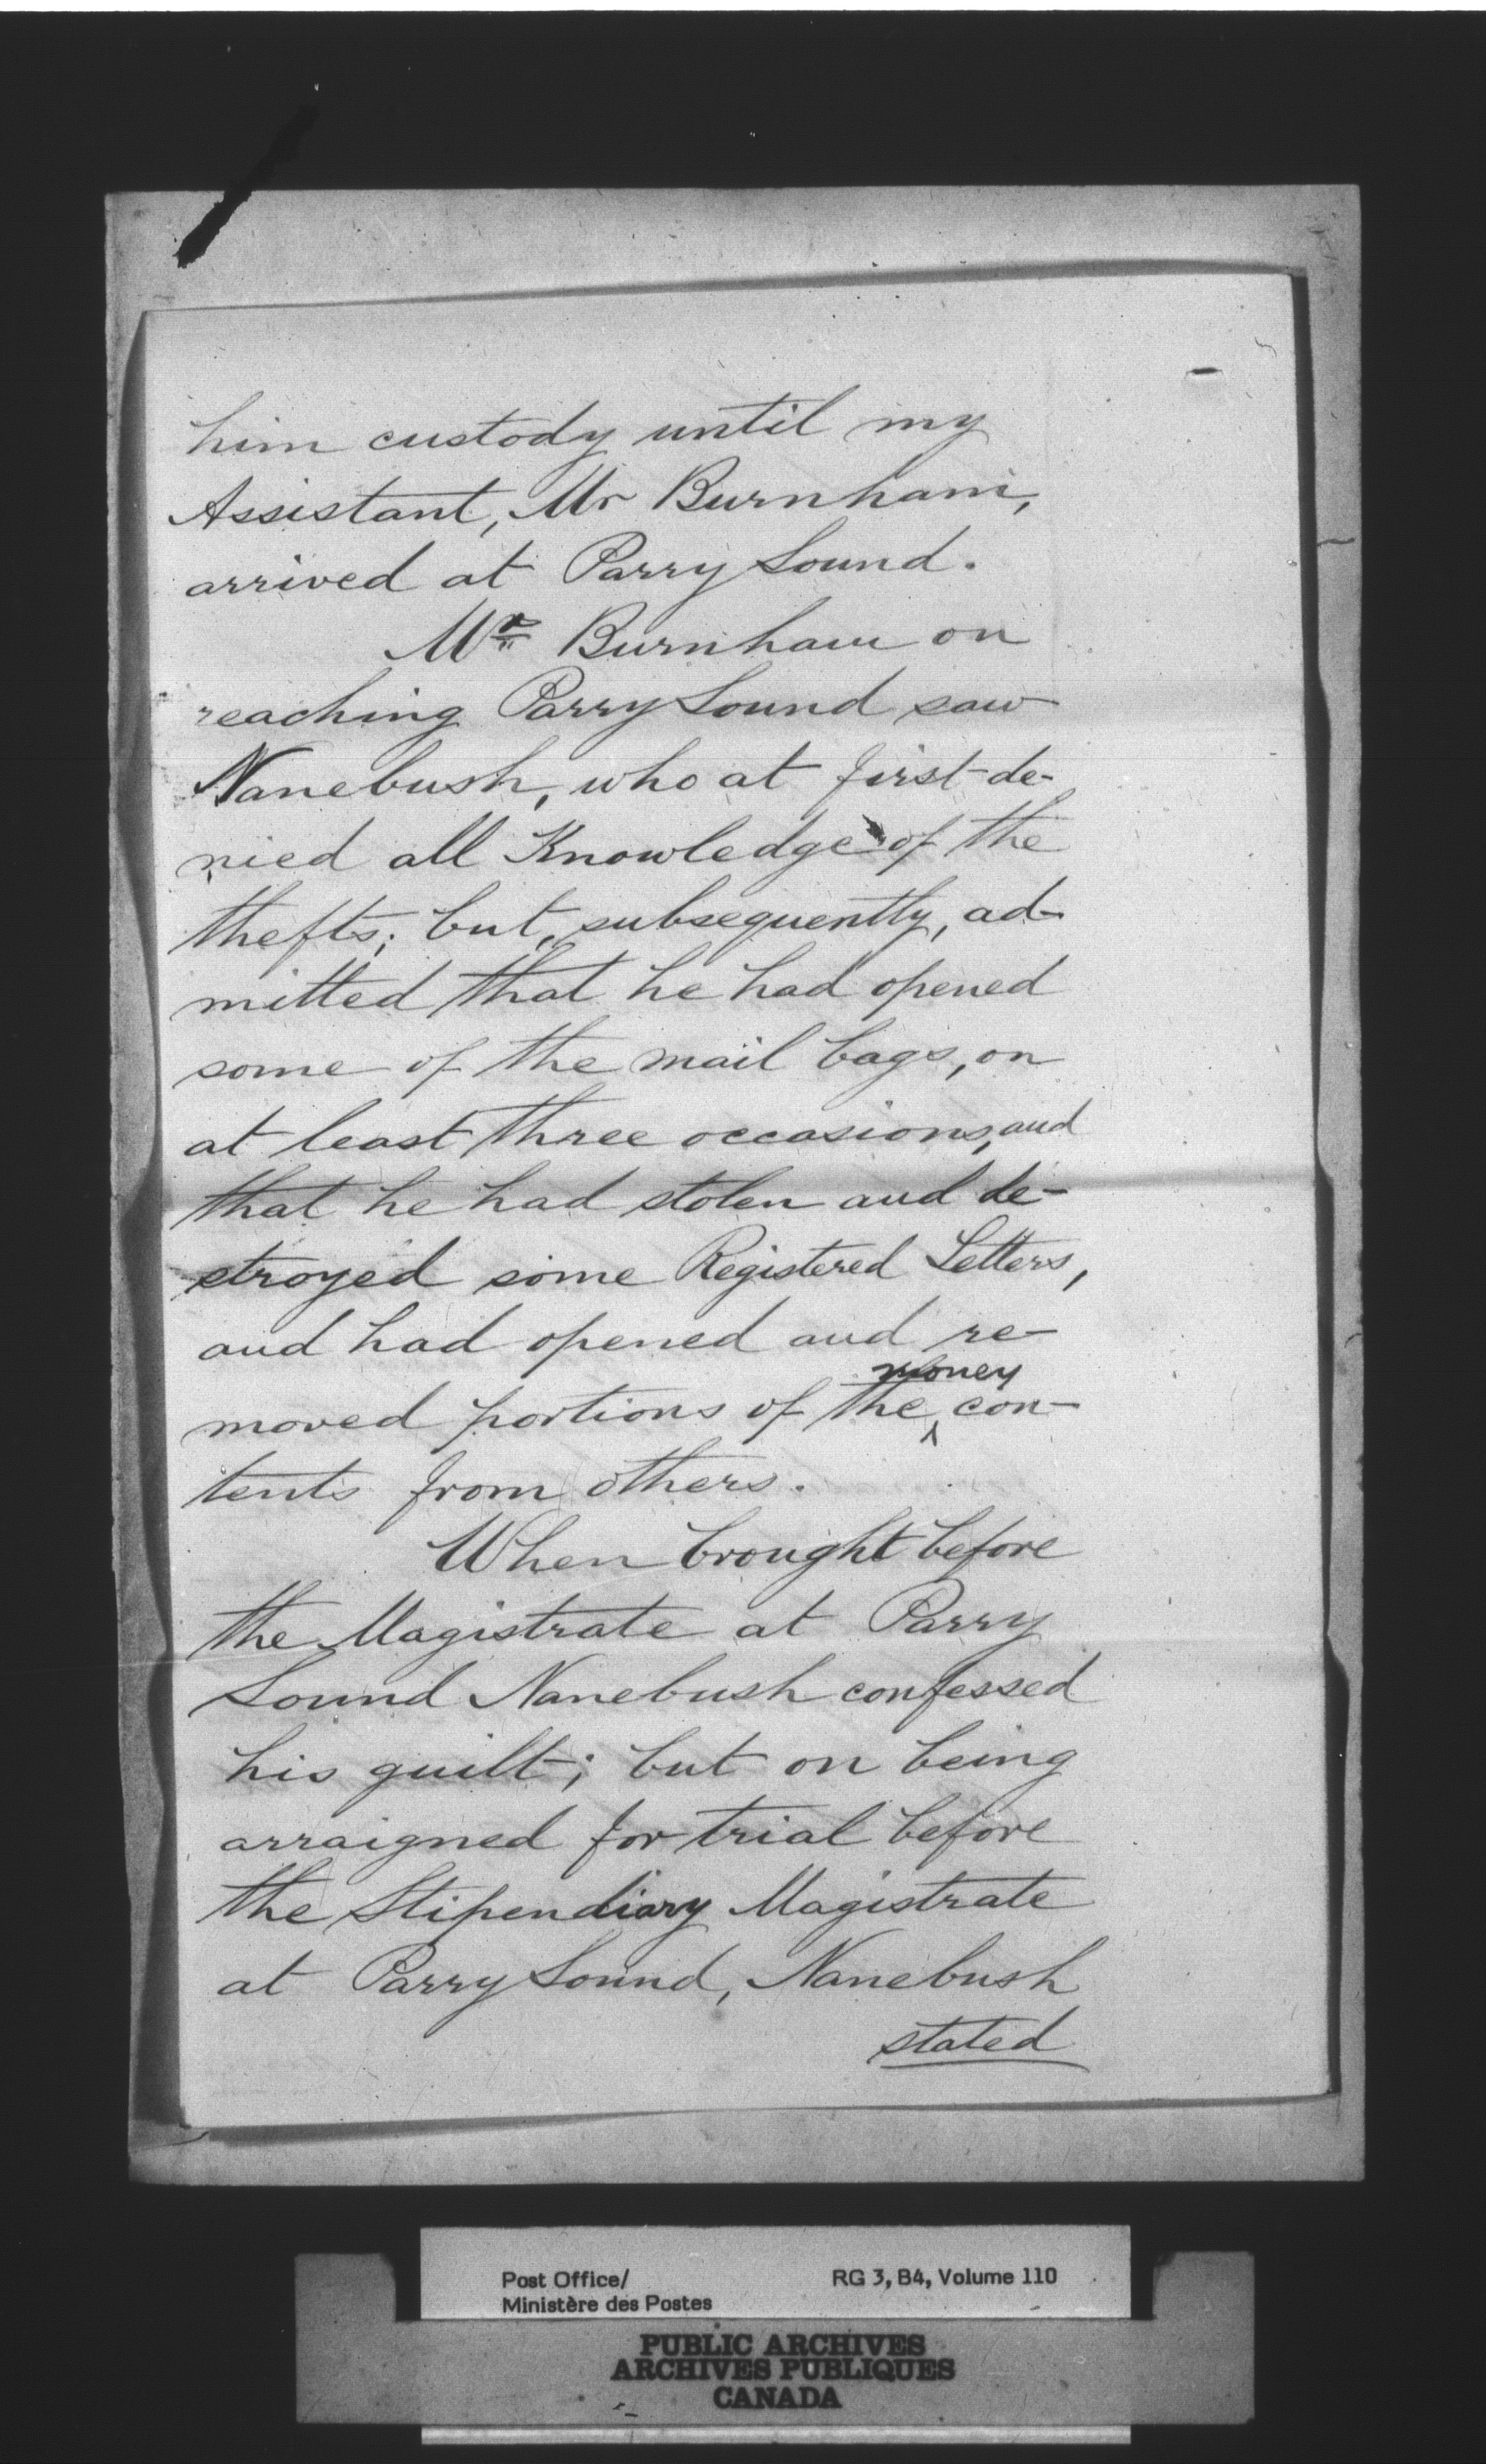 him custody until my
Assistant, Mr Burnham,
arrived at Parry Sound.
Mr Burnham on
reaching Parry Sound saw
Nanebush, who at first de-
nied all Knowledge of the
thefts; but, subsequently, ad-
mitted that he had opened
some of the mail bags, on
at least three occasions, and
that he had stolen and de-
stroyed some Registered Letters,
and had opened and re-
money
moved portions of the ‸ con-
tents from others.
When brought before
the Magistrate at Parry
Sound Nanebush confessed
his guilt; but on being
arraigned for trial before
the Stipendiary Magistrate
at Parry Sound, Nanebush
stated
Post Office/
Ministère des Postes
RG 3, B4, Volume 110
PUBLIC ARCHIVES
ARCHIVES PUBLIQUES
CANADA